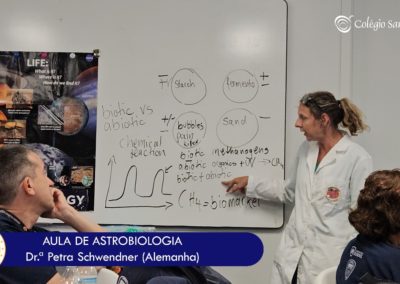 Colégio Sa
LIFE:
What is it?
Where is it?
How do we find it?
GY
biotic vs
abiotic
chemical
reaction
Starch
fermento
+/-
bubbles
Sand
biotic methanogens
abiotic organics + UV → CH4
biotic + abiotic
CH4 = biomarker
AULA DE ASTROBIOLOGIA
Dr.ª Petra Schwendner (Alemanha)